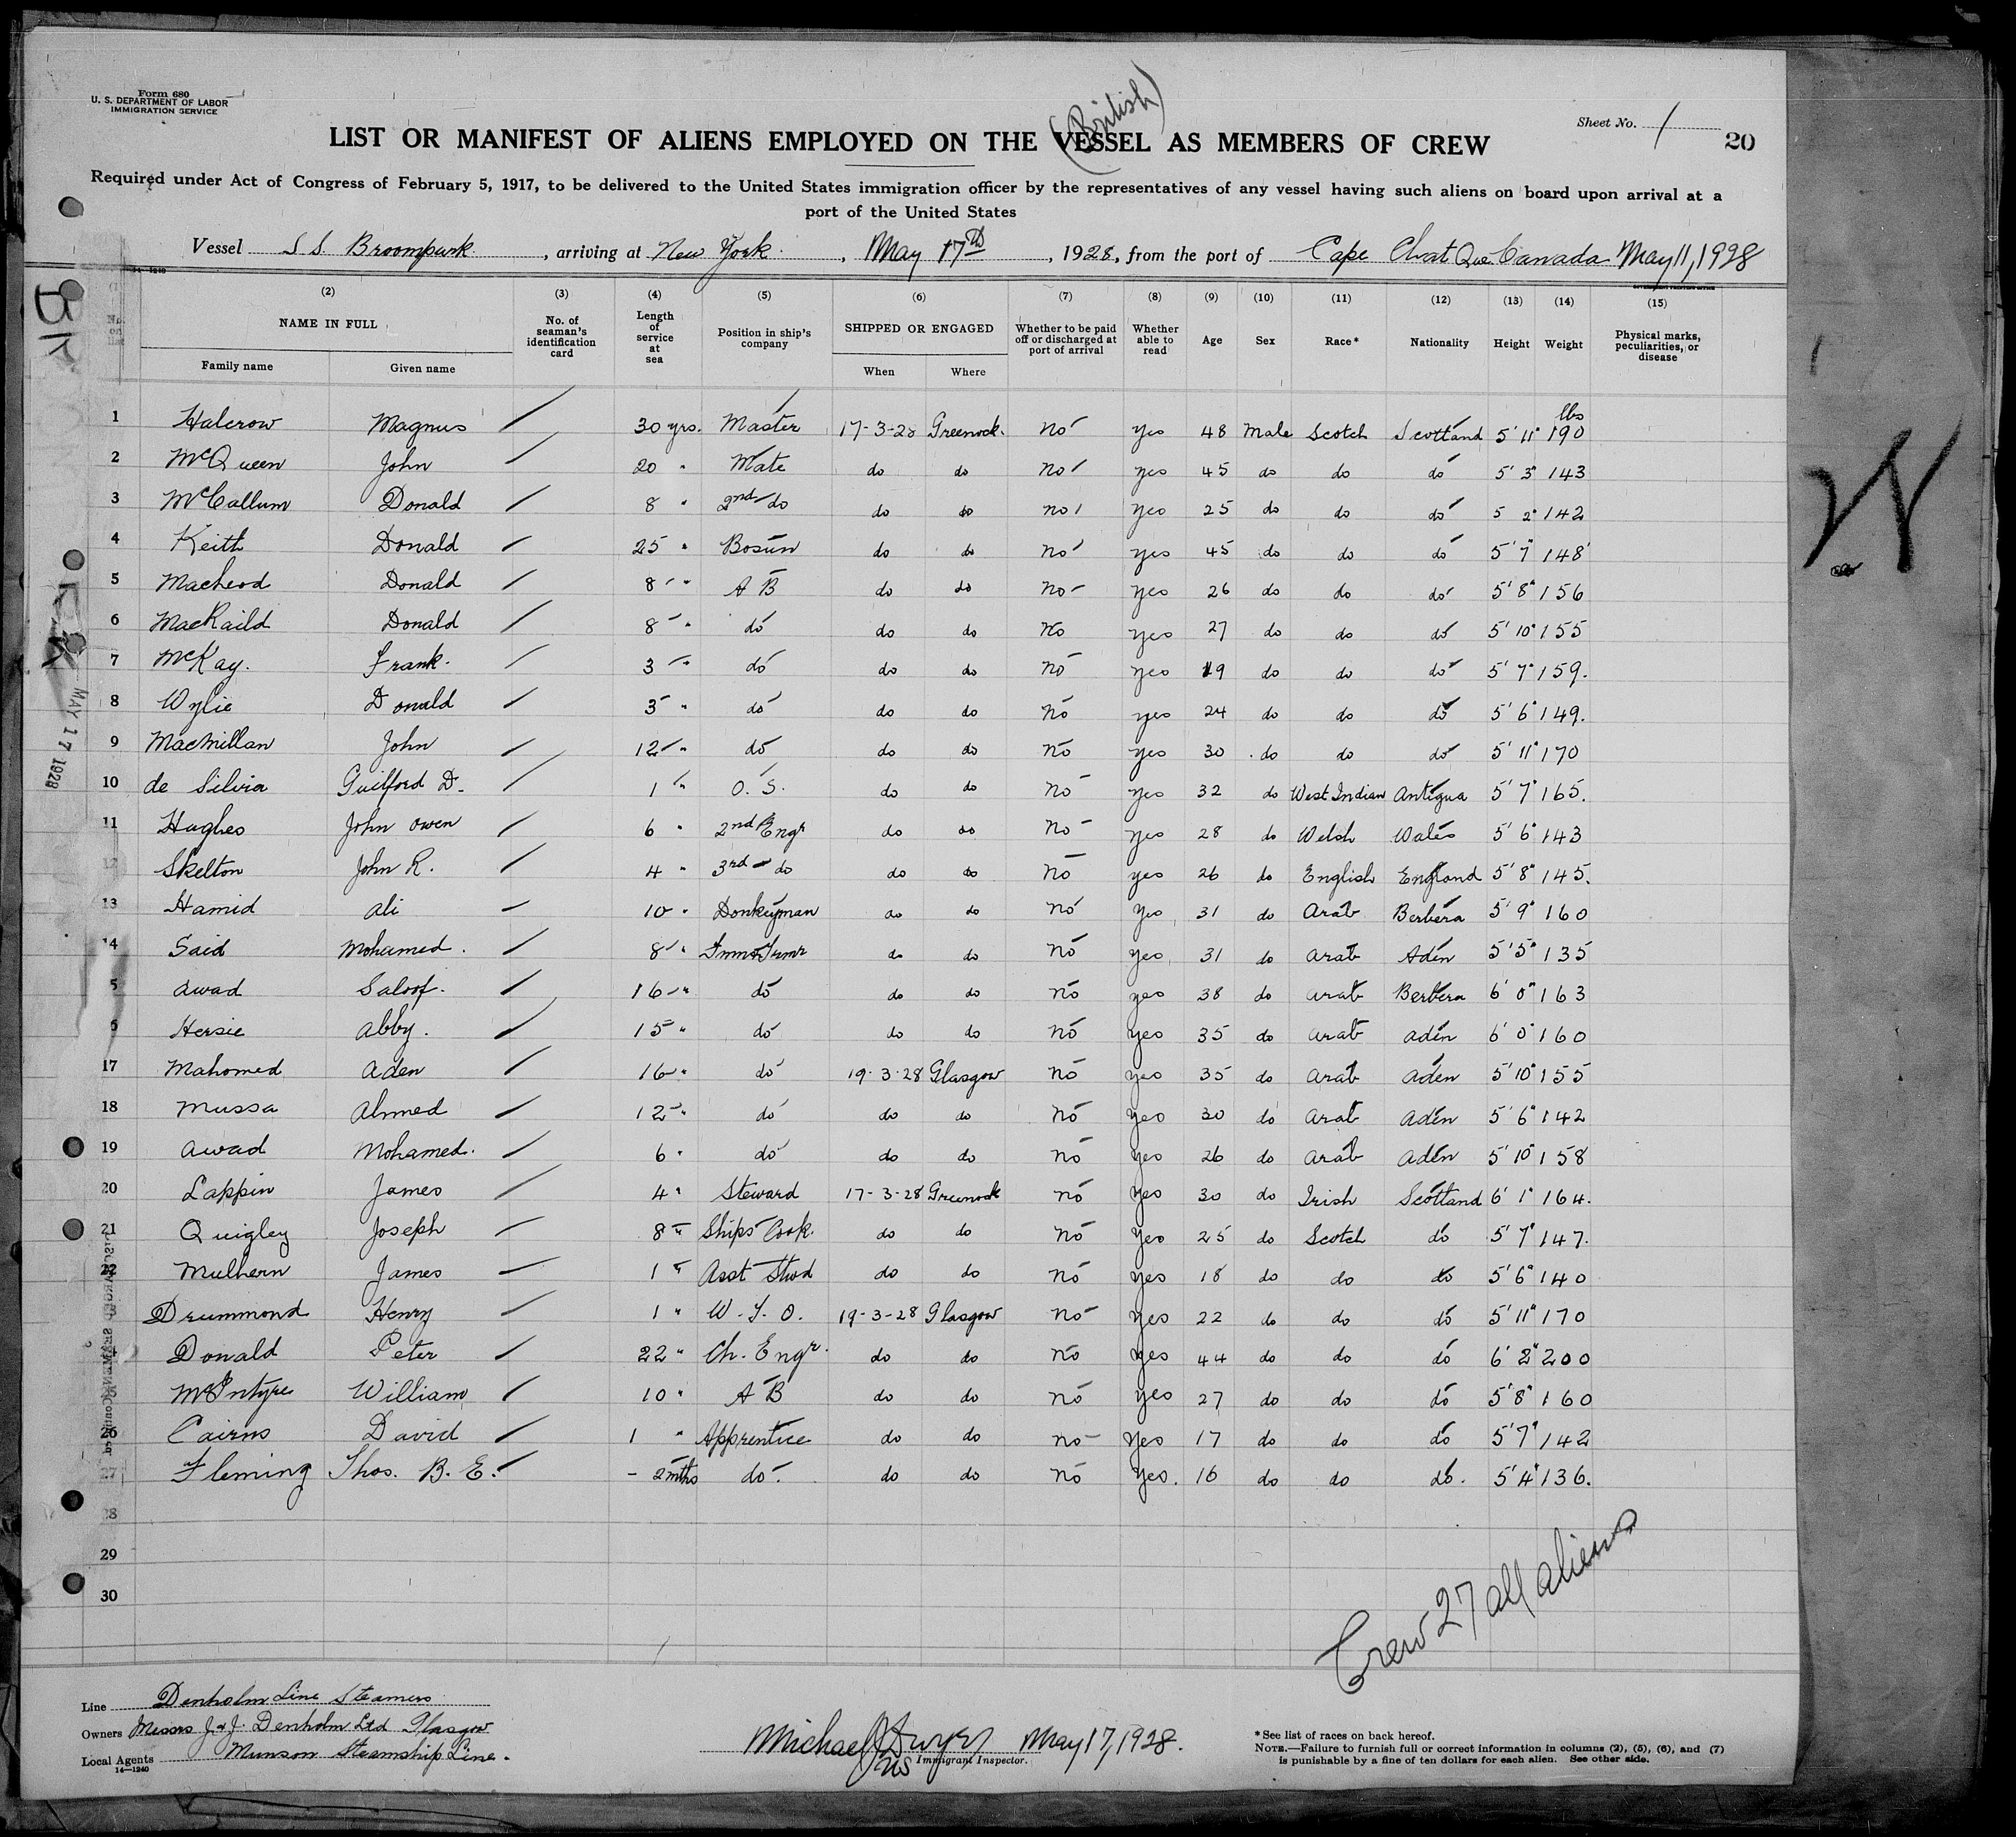 Form 680
U. S. DEPARTMENT OF LABOR
IMMIGRATION SERVICE
(British)
Sheet No. 1
20
LIST OR MANIFEST OF ALIENS EMPLOYED ON THE VESSEL AS MEMBERS OF CREW
Required under Act of Congress of February 5, 1917, to be delivered to the United States immigration officer by the representatives of any vessel having such aliens on board upon arrival at a
port of the United States
Vessel S S Broompark, arriving at New York, May 17th, 1928, from the port of Cape Chat Que. Canada May 11, 1928
(2) (3) (4) (5) (6) (7) (8) (9) (10) (11) (12) (13) (14) (15)
No. on list NAME IN FULL Family name Given name No. of seaman's identification card Length of service at sea Position in ship's company SHIPPED OR ENGAGED When Where Whether to be paid off or discharged at port of arrival Whether able to read Age Sex Race* Nationality Height Weight Physical marks, peculiarities, or disease
lbs
1 Halcrow Magnus 30 yrs. Master 17-3-28 Greenock. no yes 48 Male Scotch Scotland 5' 11" 190
2 McQueen John 20 " Mate do do no yes 45 do do do 5' 3" 143
3 McCallum Donald 8 " 2nd do do do no yes 25 do do do 5 2" 142
4 Keith Donald 25 " Bosun do do no yes 45 do do do 5' 7" 148
5 Macleod Donald 8 " A B do do no yes 26 do do do 5' 8" 156
6 MacRaild Donald 8 " do do do no yes 27 do do do 5' 10" 155
7 McKay. Frank. 3 " do do do no yes 19 do do do 5' 7" 159.
8 Wylie Donald 3 " do do do no yes 24 do do do 5' 6" 149.
9 MacMillan John 12 " do do do no yes 30 do do do 5' 11" 170
10 de Silvia Guilford D. 1 " O. S. do do no yes 32 do West Indian Antigua 5' 7" 165.
11 Hughes John Owen 6 " 2nd Engr do do no yes 28 do Welsh Wales 5' 6" 143
12 Skelton John R. 4 " 3rd do do do no yes 26 do English England 5' 8" 145.
13 Hamid Ali 10 " Donkeyman do do no yes 31 do Arab Berbera 5' 9" 160
14 Said Mohamed. 8 " do do no yes 31 do Arab Aden 5' 5" 135
5 Awad Saloof. 16 " do do do no yes 38 do Arab Berbera 6' 0" 163
6 Hersie Abby. 15 " do do do no yes 35 do Arab Aden 6' 0" 160
17 Mahomed Aden 16 " do 19-3-28 Glasgow no yes 35 do Arab Aden 5' 10" 155
18 Mussa Ahmed 12 " do do do no yes 30 do Arab Aden 5' 6" 142
19 Awad Mohamed. 6 " do do do no yes 26 do Arab Aden 5' 10" 158
20 Lappin James 4 " Steward 17-3-28 Greenock no yes 30 do Irish Scotland 6' 1" 164.
21 Quigley Joseph 8 " Ships Cook. do do no yes 25 do Scotch do 5' 7" 147.
22 Mulhern James 1 " Asst Stwd do do no yes 18 do do do 5' 6" 140
Drummond Henry 1 " W. T. O. 19-3-28 Glasgow no yes 22 do do do 5' 11" 170
4 Donald Peter 22 " Ch. Engr. do do no yes 44 do do do 6' 2" 200
5 McIntyre William 10 " A B do do no yes 27 do do do 5' 8" 160
26 Cairns David 1 " Apprentice do do no yes 17 do do do 5' 7" 142
27 Fleming Thos. B. E. - 2 mths do. do do no yes. 16 do do do. 5' 4" 136.
28
29
30
MAY 17 1928
W
Crew 27 all aliens
Line Denholm Line Steamers
Owners Messrs J & J. Denholm Ltd Glasgow
Local Agents Munson Steamship Line.
14—1240
Michael J Dwyer May 17, 1928.
Immigrant Inspector.
* See list of races on back hereof.
NOTE.—Failure to furnish full or correct information in columns (2), (5), (6), and (7)
is punishable by a fine of ten dollars for each alien. See other side.